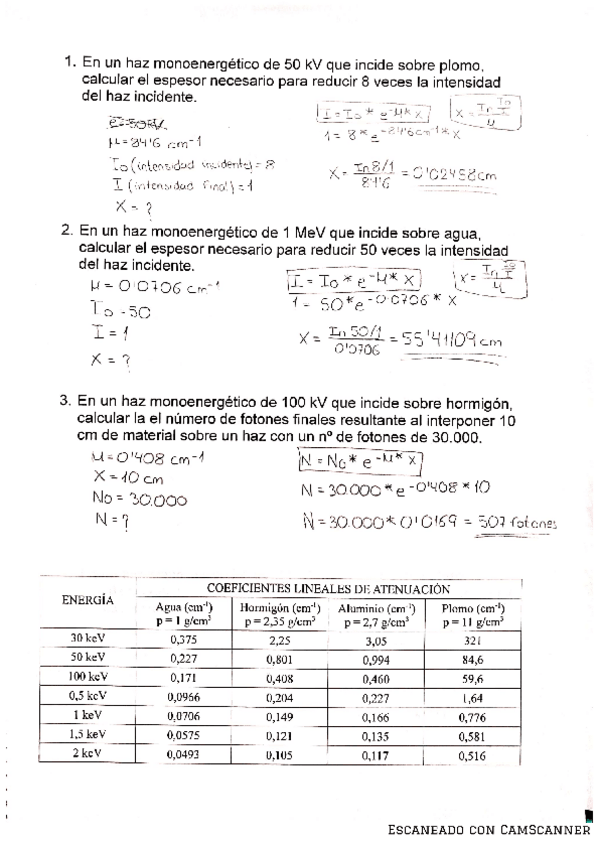 1. En un haz monoenergético de 50 kV que incide sobre plomo,
calcular el espesor necesario para reducir 8 veces la intensidad
del haz incidente.
E=50KV
μ=84'6 cm-1
Io (intensidad incidente)=8
I (intensidad final)=1
X = ?
I=Io*e-μ*X
X = In Io/I / μ
1=8*e-84'6cm-1*X
X= In 8/1 / 84'6 = 0'02458cm
2. En un haz monoenergético de 1 MeV que incide sobre agua,
calcular el espesor necesario para reducir 50 veces la intensidad
del haz incidente.
μ = 0'0706 cm-1
Io = 50
I = 1
X = ?
I = Io*e-μ*X
X = In Io/I / μ
1 = 50*e-0'0706*X
X = In 50/1 / 0'0706 = 55'41109 cm
3. En un haz monoenergético de 100 kV que incide sobre hormigón,
calcular la el número de fotones finales resultante al interponer 10
cm de material sobre un haz con un nº de fotones de 30.000.
μ=0'408 cm-1
X = 10 cm
No = 30.000
N = ?
N = No*e-μ*X
N = 30.000*e-0'408*10
N = 30.000*0'0169 = 507 fotones
ENERGÍA COEFICIENTES LINEALES DE ATENUACIÓN
Agua (cm-1) Hormigón (cm-1) Aluminio (cm-1) Plomo (cm-1)
p = 1 g/cm3 p = 2,35 g/cm3 p = 2,7 g/cm3 p = 11 g/cm3
30 keV 0,375 2,25 3,05 321
50 keV 0,227 0,801 0,994 84,6
100 keV 0,171 0,408 0,460 59,6
0,5 keV 0,0966 0,204 0,227 1,64
1 keV 0,0706 0,149 0,166 0,776
1,5 keV 0,0575 0,121 0,135 0,581
2 keV 0,0493 0,105 0,117 0,516
ESCANEADO CON CAMSCANNER